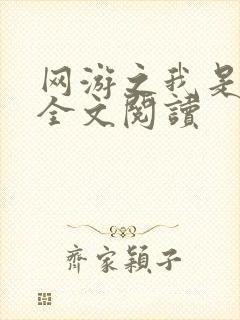 网游之我是
全文閱讀
齊家穎子